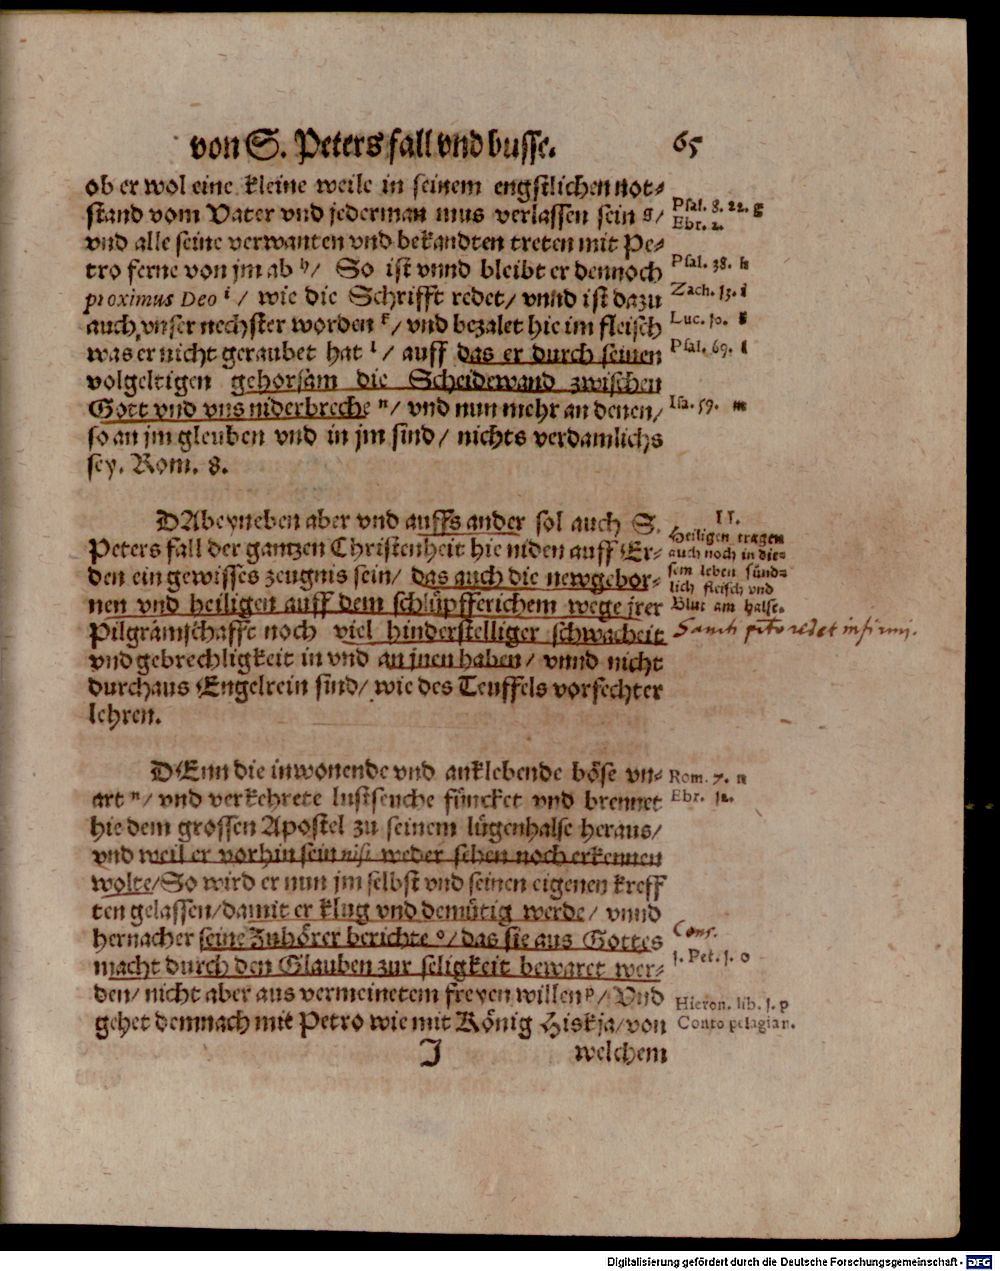 von S. Peters fall vnd busse. 65
ob er wol eine kleine weile in seinem engstlichen not-
stand vom Vater vnd jederman mus verlassen sein g/
vnd alle seine verwanten vnd bekandten treten mit Pe-
tro ferne von jm ab h/ So ist vnnd bleibt er dennoch
proximus Deo i / wie die Schrifft redet/ vnnd ist dazu
auch vnser nechster worden k/ vnd bezalet hie im fleisch
was er nicht geraubet hat l/ auff das er durch seinen
volgeltigen gehorsam die Scheidewand zwischen
Gott vnd vns niderbreche n/ vnd nun mehr an denen/
so an jm gleuben vnd in jm sind/ nichts verdamlichs
sey. Rom. 8.
Psal. 8. 22. g
Ebr. 2.
Psal. 38. h
Zach. 13. i
Luc. 10. k
Psal. 69. l
Isa. 59. m
DAbeyneben aber vnd auffs ander sol auch S.
Peters fall der gantzen Christenheit hie niden auff Er-
den ein gewisses zeugnis sein/ das auch die newgebor-
nen vnd heiligen auff dem schlüpfferichem wege jrer
Pilgramschafft noch viel hinderstelliger schwacheit
vnd gebrechligkeit in vnd an jnen haben/ vnnd nicht
durchaus Engelrein sind/ wie des Teuffels vorfechter
lehren.
II.
Heiligen tragen
auch noch in die-
sem leben sünd-
lich fleisch vnd
Blut am halse.
Sancti
DEnn die inwonende vnd anklebende böse vn-
art n/ vnd verkehrete lustseuche füncket vnd brennet
hie dem grossen Apostel zu seinem lügenhalse heraus/
vnd weil er vorhin sein nisi weder sehen noch erkennen
wolte/ So wird er nun jm selbst vnd seinen eigenen kreff
ten gelassen/ damit er klug vnd demütig werde/ vnnd
hernacher seine Zuhörer berichte o/ das sie aus Gottes
macht durch den Glauben zur seligkeit bewaret wer-
den/ nicht aber aus vermeinetem freyen willen p/ Vnd
gehet demnach mit Petro wie mit König Hiskja/ von
Rom. 7. n
Ebr. 12.
Cons.
1. Pet. 1. o
Hieron. lib. 1. p
Conto pelagian.
J welchem
Digitalisierung gefördert durch die Deutsche Forschungsgemeinschaft - DFG